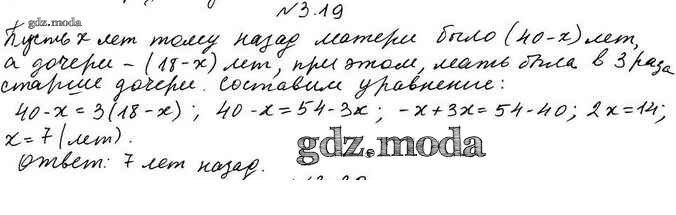 №3.19
gdz.moda
Пусть x лет тому назад матери было (40-x) лет,
а дочери - (18-x) лет, при этом, мать была в 3 раза
старше дочери. Составим уравнение:
40-x=3(18-x); 40-x=54-3x; -x+3x=54-40; 2x=14;
x=7 (лет).
Ответ: 7 лет назад.
gdz.moda